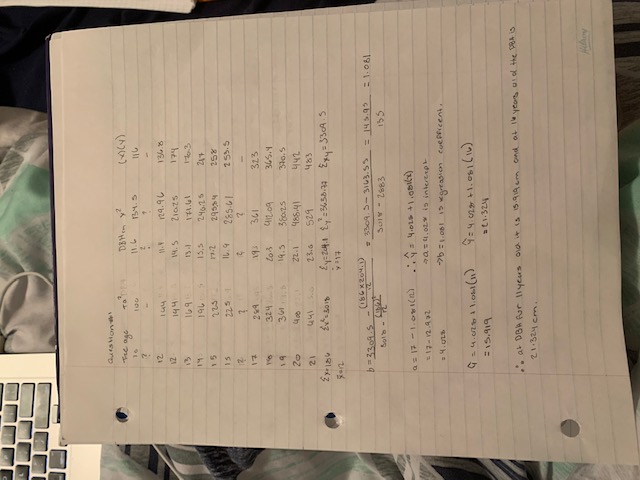 Question #1
Tree age DBH cm x² (x)(y)
10 100 11.6 134.5 116
? - ? ? -
12 144 11.4 129.96 136.8
12 144 14.5 210.25 174
13 169 13.1 171.61 170.3
14 196 15.5 240.25 217
15 225 17.2 295.84 258
15 225 16.9 285.61 253.5
? ? ? ? -
17 289 19 361 323
18 324 20.3 412.09 365.4
19 361 19.5 380.25 370.5
20 400 22.1 488.41 442
21 441 23.0 529 483
Σx=186 Σx²=3018 Σy=204.1 Σy²=3638.77 Σxy=3309.5
x̄=12 =17
b = 3309.5 - (186x204.1)/12 = 3309.5 - 3163.55 = 145.95 = 1.081
3018 - (186)²/12 3018 - 2883 135
a = 17 - 1.081(12) ∴ ŷ = 4.028 + 1.081(x)
= 17 - 12.972 → a = 4.028 is intercept
= 4.028 → b = 1.081 is regression coefficent.
ŷ = 4.028 + 1.081(11) ŷ = 4.028 + 1.081(16)
= 15.919 = 21.324
∴ at DBH for 11 years old it is 15.919 cm and at 16 years old the DBH is
21.324 cm.
Hilroy